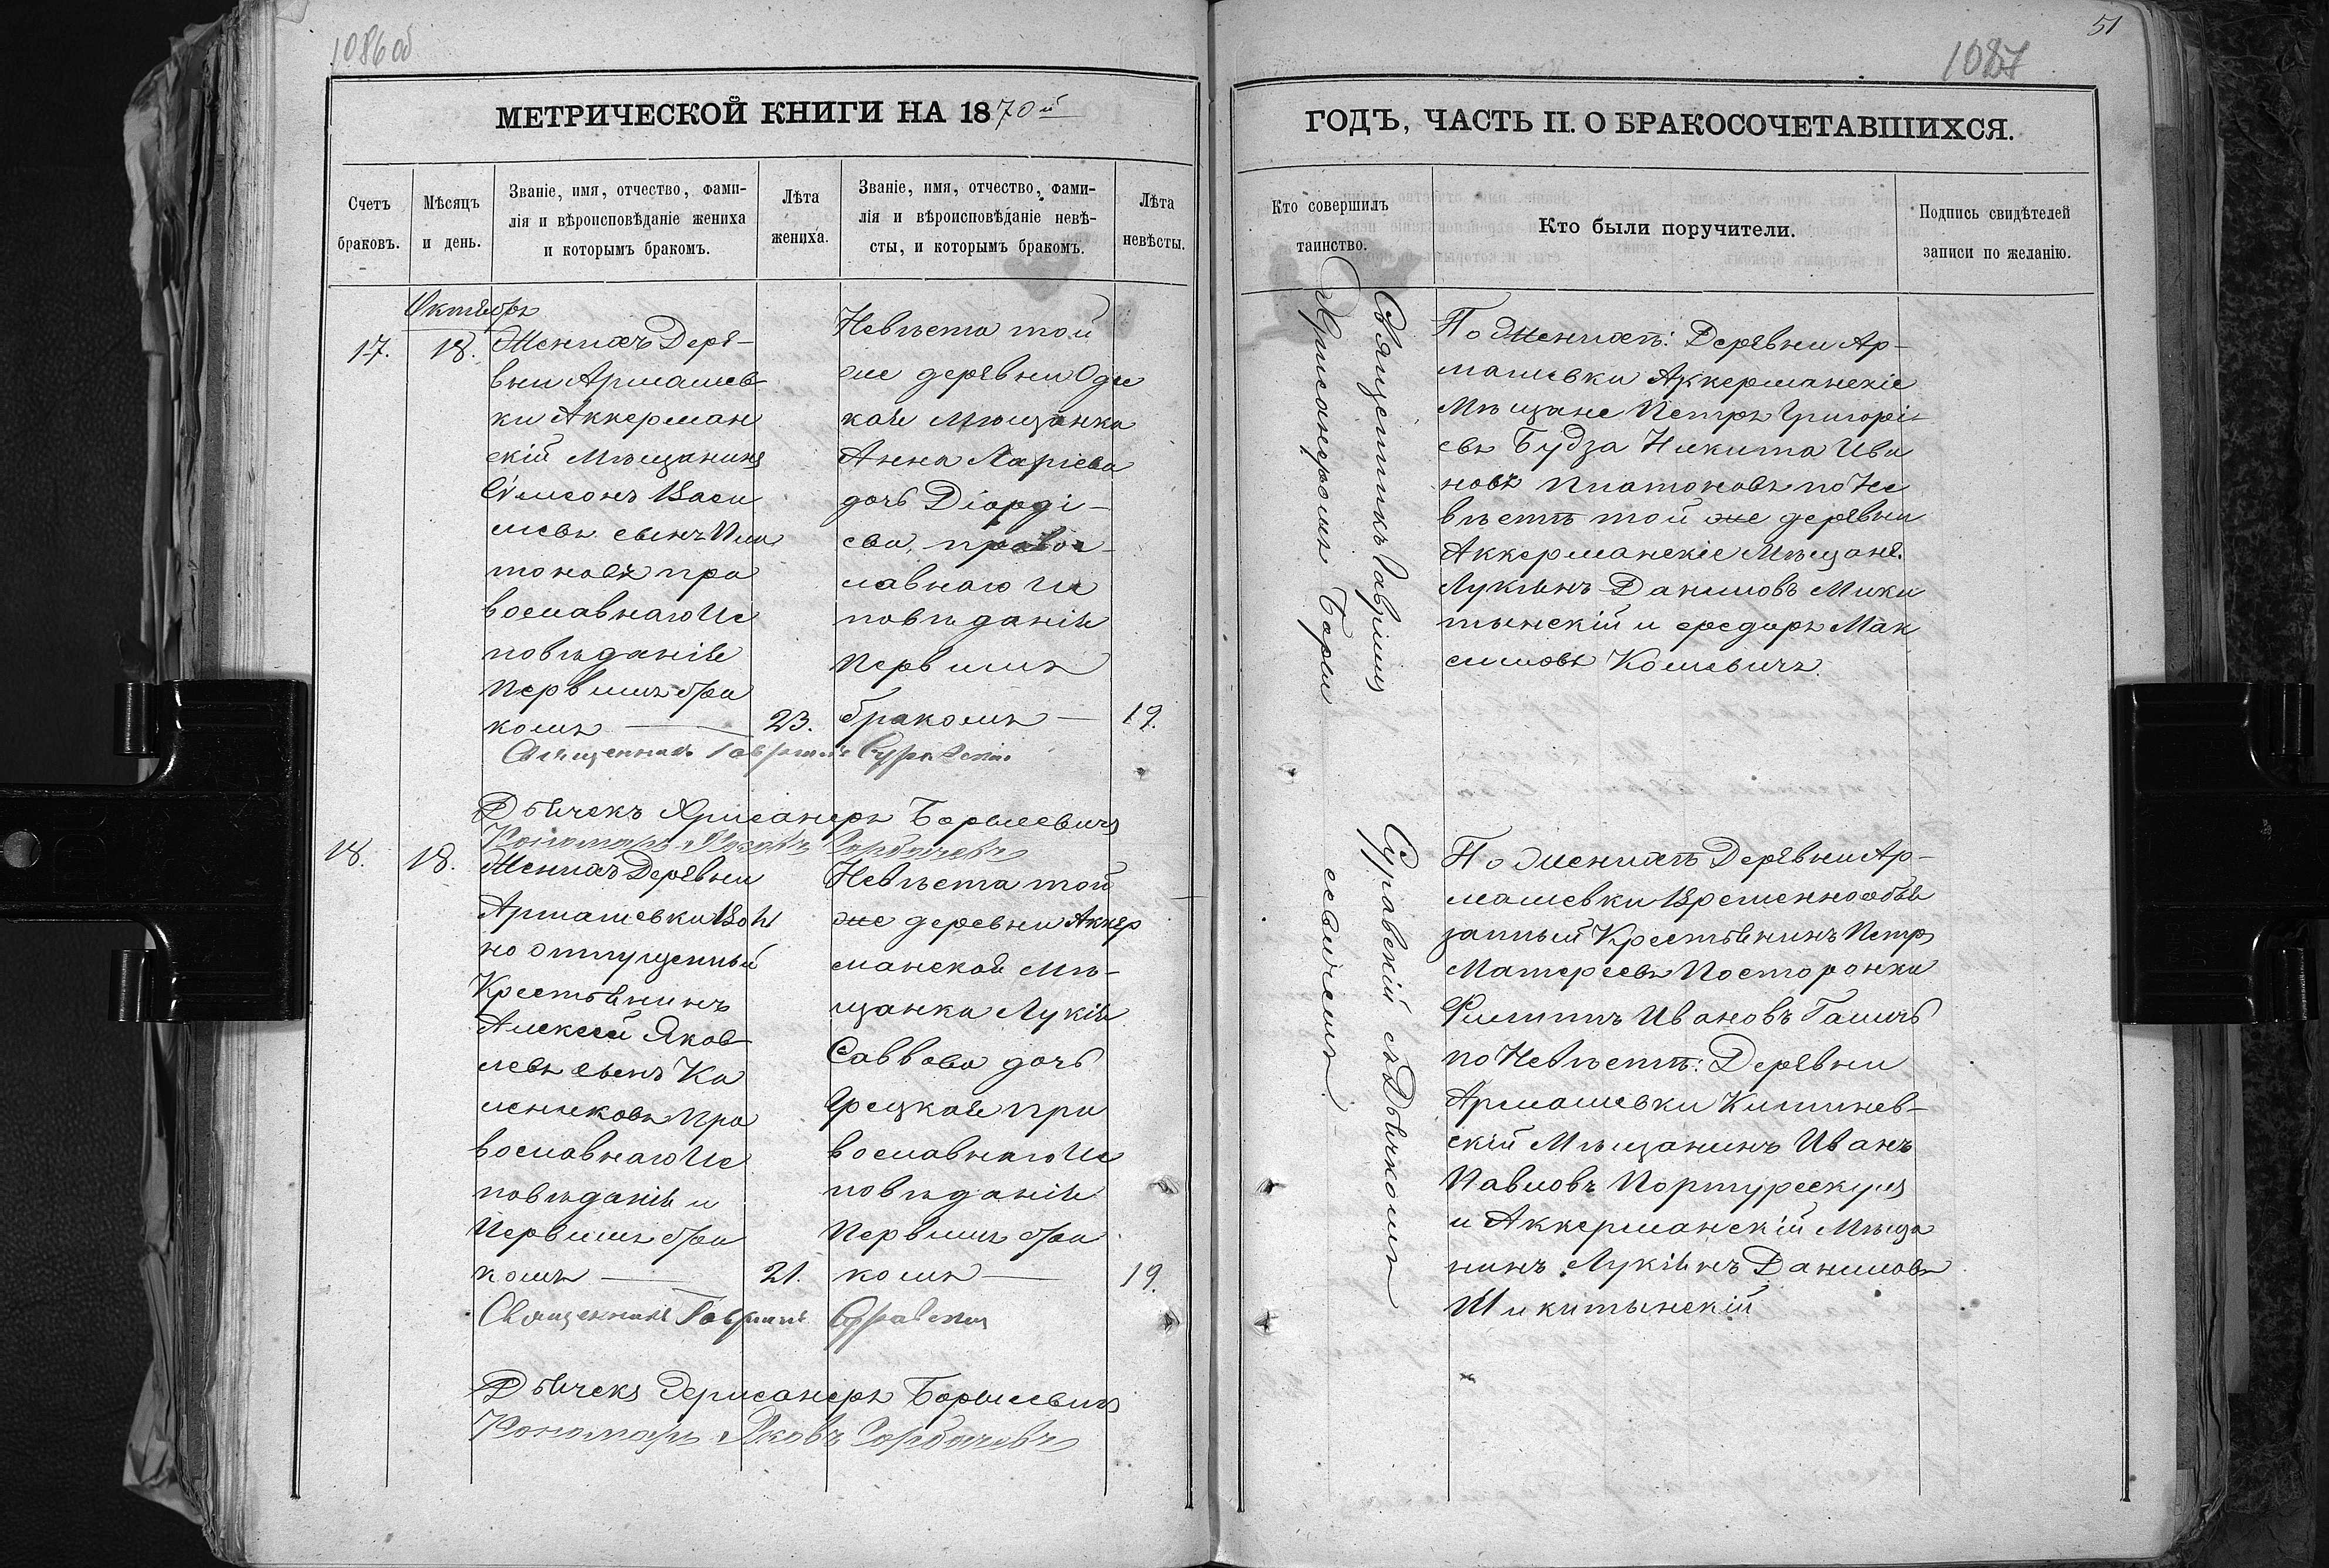 1086 об
МЕТРИЧЕСКОЙ КНИГИ НА 1870й
Счетъ
браковъ.
Мѣсяцъ
и день.
Званіе, имя, отчество, фами-
лія и вѣроисповѣданіе жениха
и которымъ бракомъ.
Лѣта
жениха.
Званіе, имя, отчество, фами-
лія и вѣроисповѣданіе невѣ-
сты, и которымъ бракомъ.
Лѣта
невѣсты.
Октябрь
17.
18.
Женихъ Дере-
вни Армашев
ки Аккерман
скій Мѣщанинъ
Симеонъ Васи
лiевъ сынъ Пла
тоновъ пра
вославнаго Ис
повѣданія
Первымъ бра
комъ
23.
Невѣста той
же деревни Одес
кая мѣщанка
Анна
дочь Діорді-
ева, правос-
лавнаго Ис
повѣданія
Первымъ
бракомъ
19.
Священникъ Гавріилъ Суравскій
Дьячекъ Хрисанфъ Борисевичъ
Пономарь Яковъ Горбачевъ
18.
18.
Женихъ Деревни
Армашевки Воль
но отпущенный
Крестьянинъ
Алексей Яков
левъ сынъ Ка
лениковъ Пра
вославнаго Ис
повѣданія и
Первымъ бра
комъ
21.
Невѣста той
же деревни Аккер
манской Мѣ-
щанка Лукія
Саввова дочь
Грецкая пра
вославнаго Ис
повѣданія
Первымъ бра
комъ
19.
Священникъ Гавріилъ Суравскій
Дьячекъ Хрисанфъ Борисевичъ
Пономарь Яковъ Горбачевъ
51
1087
ГОДЪ, ЧАСТЬ II. О БРАКОСОЧЕТАВШИХСЯ.
Кто совершилъ
таинство.
Кто были поручители.
Подпись свидѣтелей
записи по желанію.
Священникъ Гавріилъ Суравскій съ Дьячкомъ
Хрисанфомъ Борисевичемъ
По Женихѣ: Деревни Ар-
машевки Аккерманскіе
Мѣщане Петръ Григорі-
евъ Будза Никита Ива
новъ Платоновъ по Не
вѣстѣ той же деревни
Аккерманскіе Мѣщане.
Лукіянъ Даниловъ Мики
тынскій и Феодоръ Мак
симовъ Кошевичъ.
По Женихѣ Деревни Ар-
машевки Временнообя
занный Крестьянинъ Петръ
Матфеевъ Посторонки
Филиппъ Ивановъ Галичъ
по Невѣстѣ: Деревни
Армашевки Кишинев-
скій Мѣщанинъ Иванъ
Павловъ Портурескулъ
и Аккерманскій Мѣща
нинъ Лукіянъ Даниловъ
Микитынскій